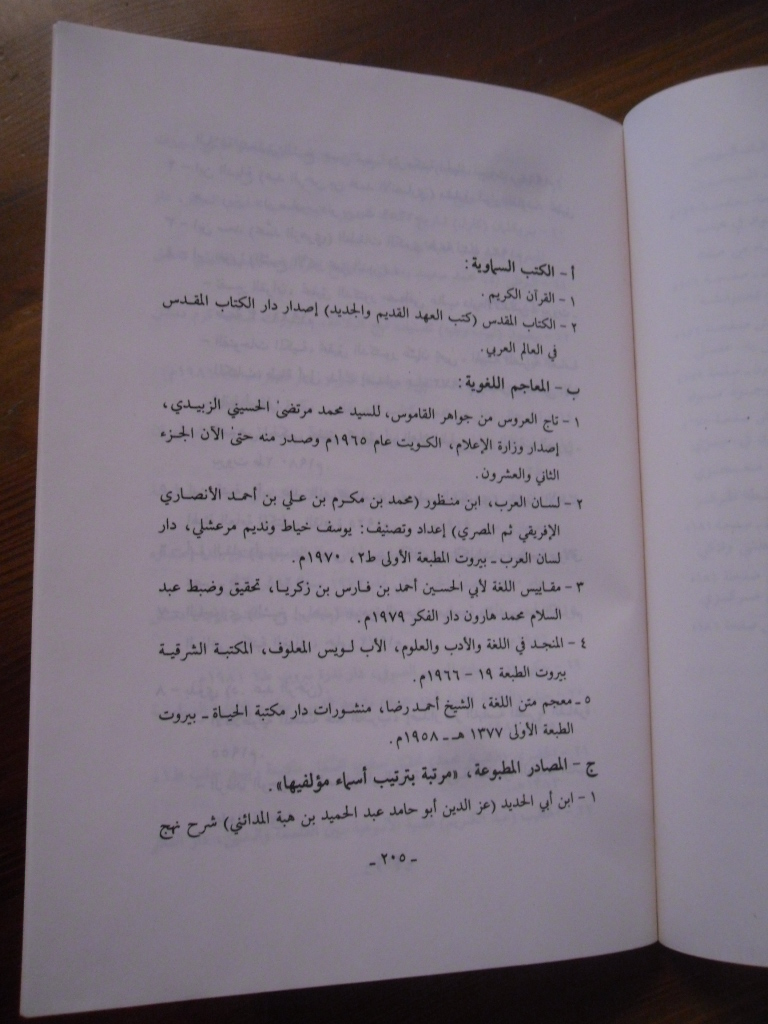 أ - الكتب السماوية :
١ - القرآن الكريم .
٢ - الكتاب المقدس (كتب العهد القديم والجديد) إصدار دار الكتاب المقدس
في العالم العربي.
ب - المعاجم اللغوية :
١ - تاج العروس من جواهر القاموس، للسيد محمد مرتضىٰ الحسيني الزبيدي،
إصدار وزارة الإعلام، الكويت عام ١٩٦٥م وصدر منه حتىٰ الآن الجزء
الثاني والعشرون.
٢ - لسان العرب، ابن منظور (محمد بن مكرم بن علي بن أحمد الأنصاري
الإفريقي ثم المصري) إعداد وتصنيف: يوسف خياط ونديم مرعشلي، دار
لسان العرب - بيروت المطبعة الأولى ط٢، ١٩٧٠م.
٣ - مقاييس اللغة لأبي الحسين أحمد بن فارس بن زكريا، تحقيق وضبط عبد
السلام محمد هارون دار الفكر ١٩٧٩م.
٤ - المنجد في اللغة والأدب والعلوم، الأب لويس المعلوف، المكتبة الشرقية
بيروت الطبعة ١٩ - ١٩٦٦م.
٥ - معجم متن اللغة، الشيخ أحمد رضا، منشورات دار مكتبة الحياة - بيروت
الطبعة الأولى ١٣٧٧ هـ - ١٩٥٨م.
ج - المصادر المطبوعة، «مرتبة بترتيب أسماء مؤلفيها».
١ - ابن أبي الحديد (عز الدين أبو حامد عبد الحميد بن هبة المدائني) شرح نهج
- ٢٠٥ -